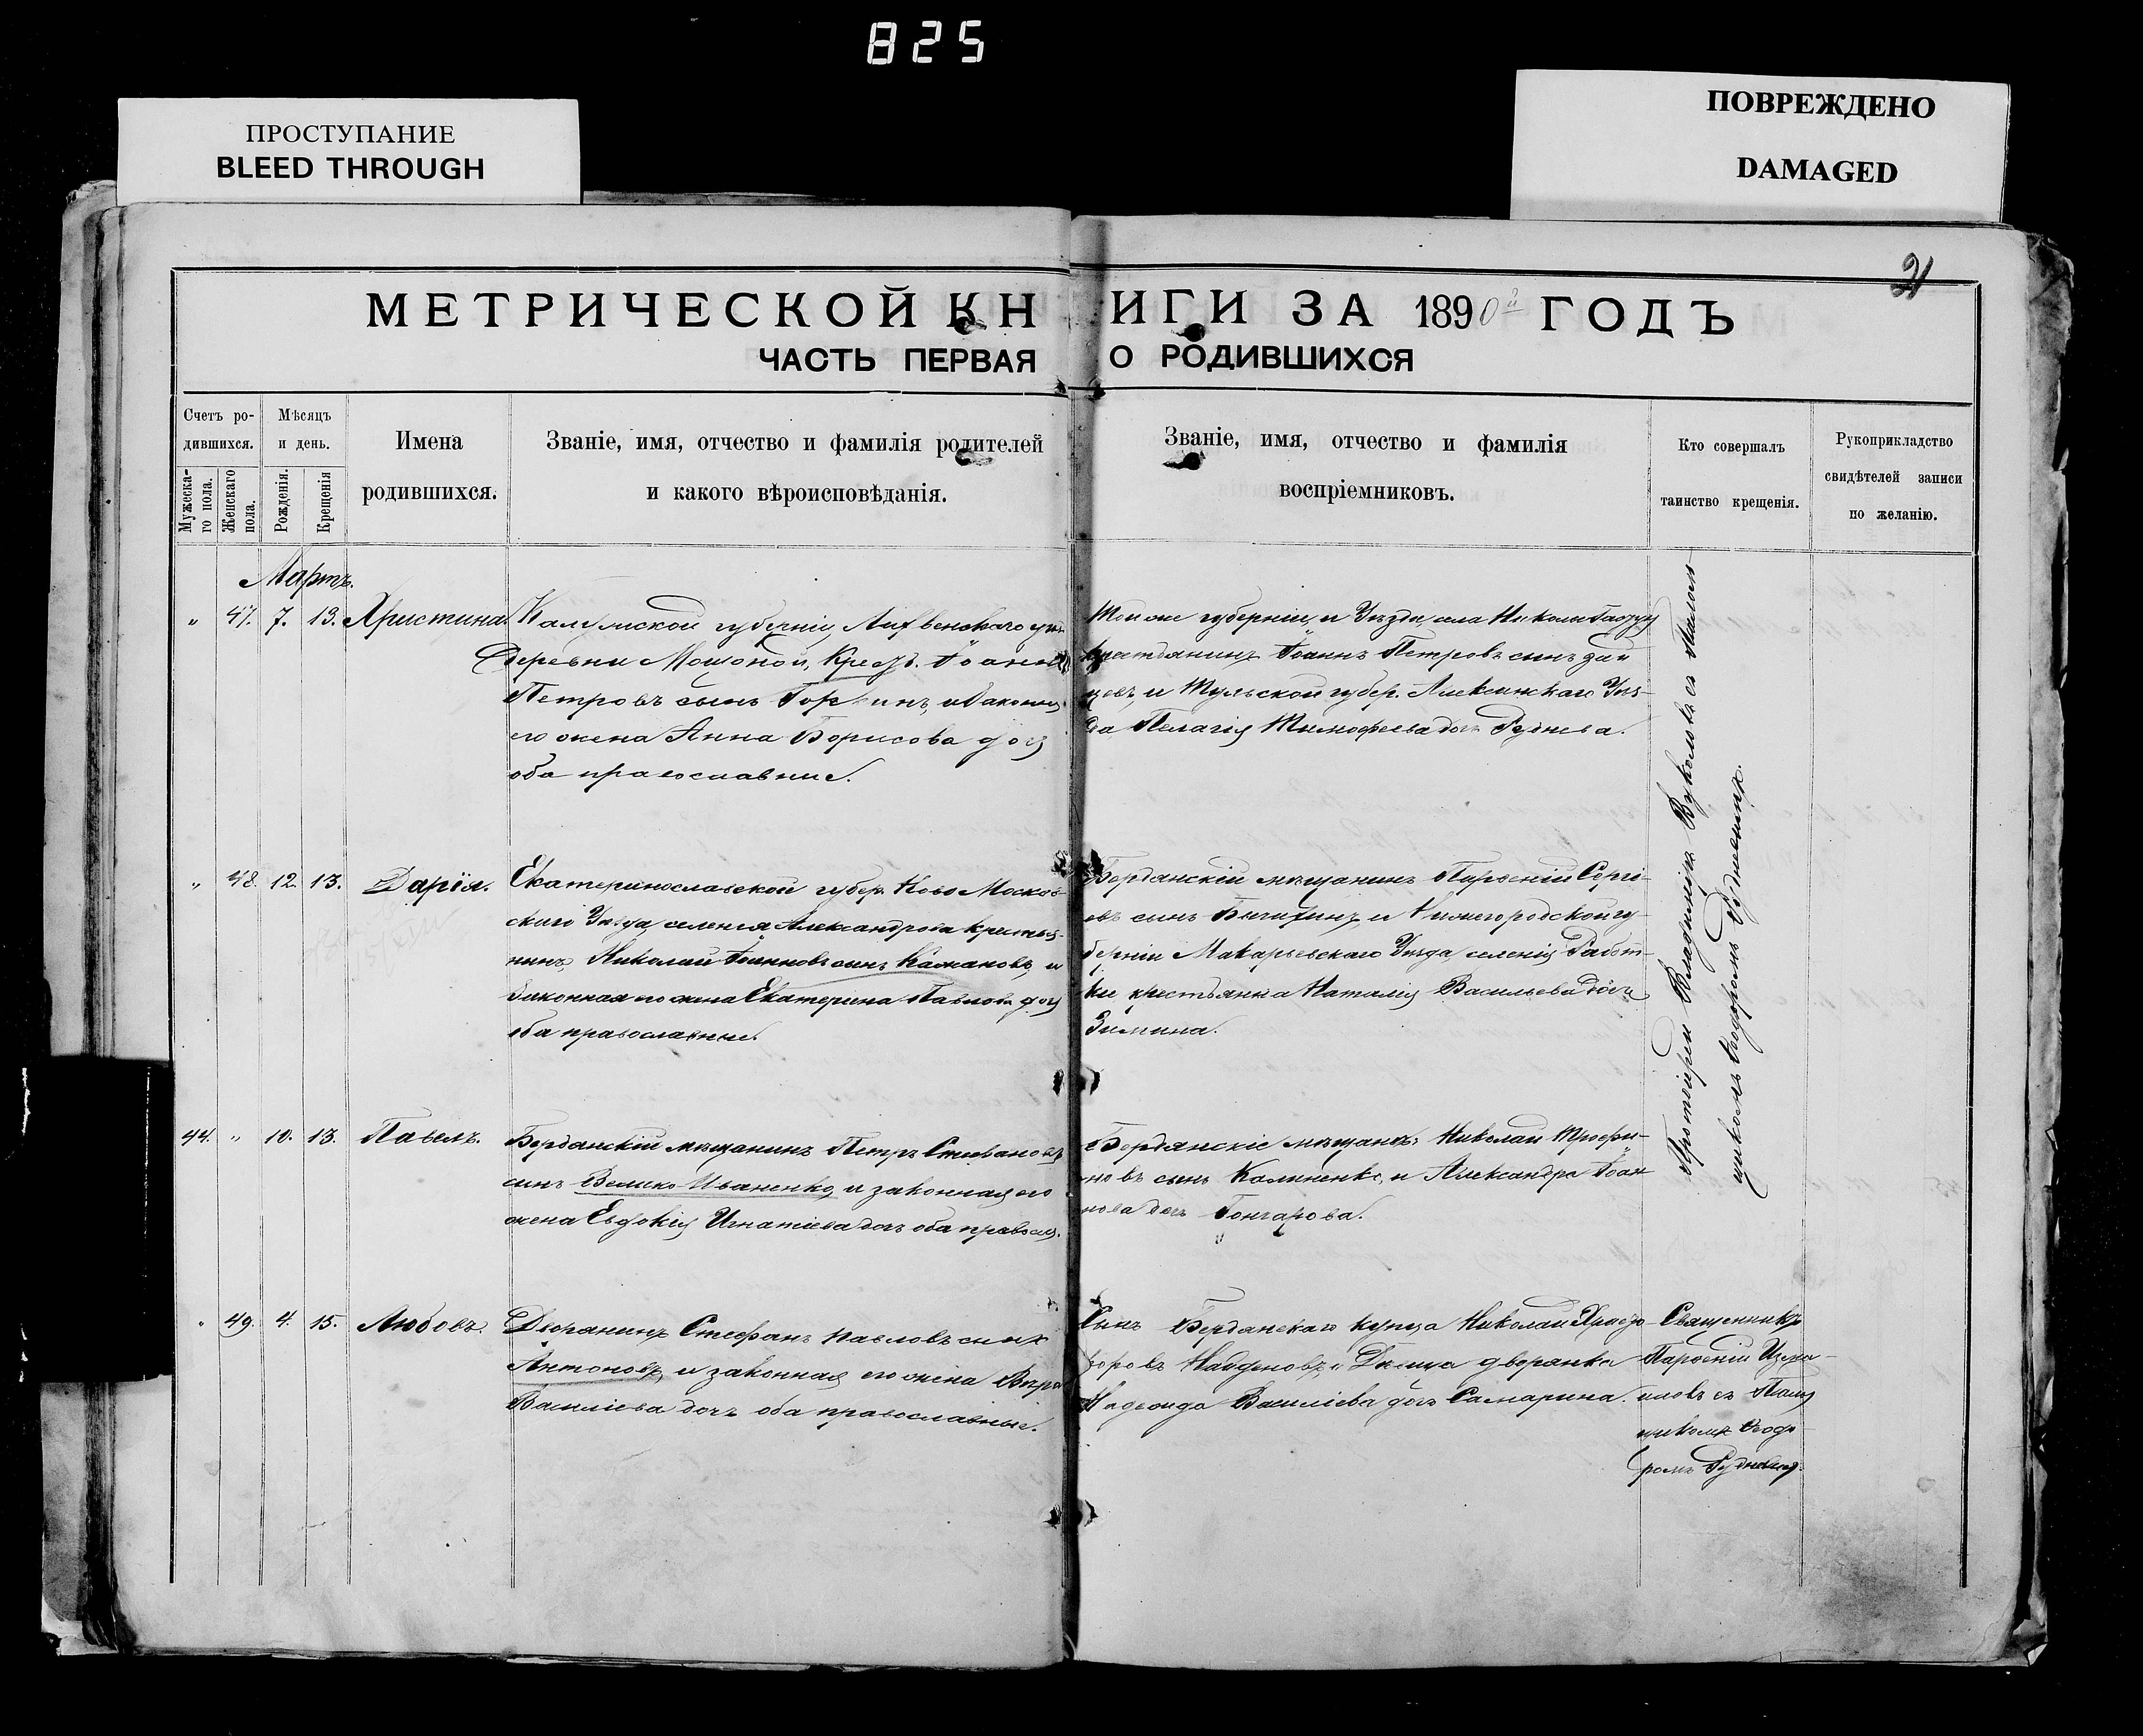 825
ПРОСТУПАНИЕ
BLEED THROUGH
ПОВРЕЖДЕНО
DAMAGED
21
МЕТРИЧЕСКОЙ КНИГИ ЗА 1890й ГОДЪ
ЧАСТЬ ПЕРВАЯ О РОДИВШИХСЯ
Счетъ ро-
дившихся.
Мужеска-
го пола.
Женскаго
пола.
Мѣсяцъ
и день.
Рожденія.
Крещенія
Имена
родившихся.
Званіе, имя, отчество и фамилія родителей
и какого вѣроисповѣданія.
Званіе, имя, отчество и фамилія
воспріемниковъ.
Кто совершалъ
таинство крещенія.
Рукоприкладство
свидѣтелей записи
по желанію.
Мартъ.
" 47. 7. 13. Христина
Калужской губерніи, Лихвенскаго
Деревни Мощоной, Крест. Іоаннъ
Петровъ сынъ и законная
его жена Анна Борисова дочь
оба православные.
Той же губерніи и Уѣзда, села
крестьянинъ Іоаннъ Петровъ сынъ Зай
цевъ, и Тульской губер. Алексинскаго Уѣз-
да Пелагія Тимофеева дочь Руднева.
" 48. 12. 13. Дарія.
Екатеринославской губер. Ново Москов-
скаго Уѣзда, селенія Александрова крестья-
нинъ, Николай Іоанновъ сынъ Кажановъ, и
законная его жена Екатерина Павлова дочь
оба православные.
Бердянскій мѣщанинъ Парѳеній Сергі-
евъ сынъ и Нижегородской гу-
берніи Макарьевскаго Уѣзда, селенія Работ-
ки крестьянка Наталія Васильева дочь
Зимина.
44. " 10. 13. Павелъ.
Бердянскій мѣщанинъ Петръ Стефановъ
сынъ Велико-Иваненко, и законная его
жена Евдокія Игнатіева дочь оба правосл.
Бердянскіе мѣщане: Николай Трофи-
мовъ сынъ Калиненко, и Александра Іоан
нова дочь Гончарова.
Протоіерей Владиміръ Вуколовъ съ Псалом-
щикомъ Ѳеодоромъ Рудневымъ.
" 49. 4. 15. Любовь.
Дворянинъ Стефанъ Павловъ сынъ
Антоновъ, и законная его жена Вѣра
Василіева дочь оба православные.
Сынъ Бердянскаго купца Николай Христо
форовъ Найденовъ, и Дѣвица дворянка
Надежда Василіева дочь Самарина.
Священникъ
Парѳеній Изма-
иловъ съ Псалом
щикомъ Ѳеодо
ромъ Рудневымъ.